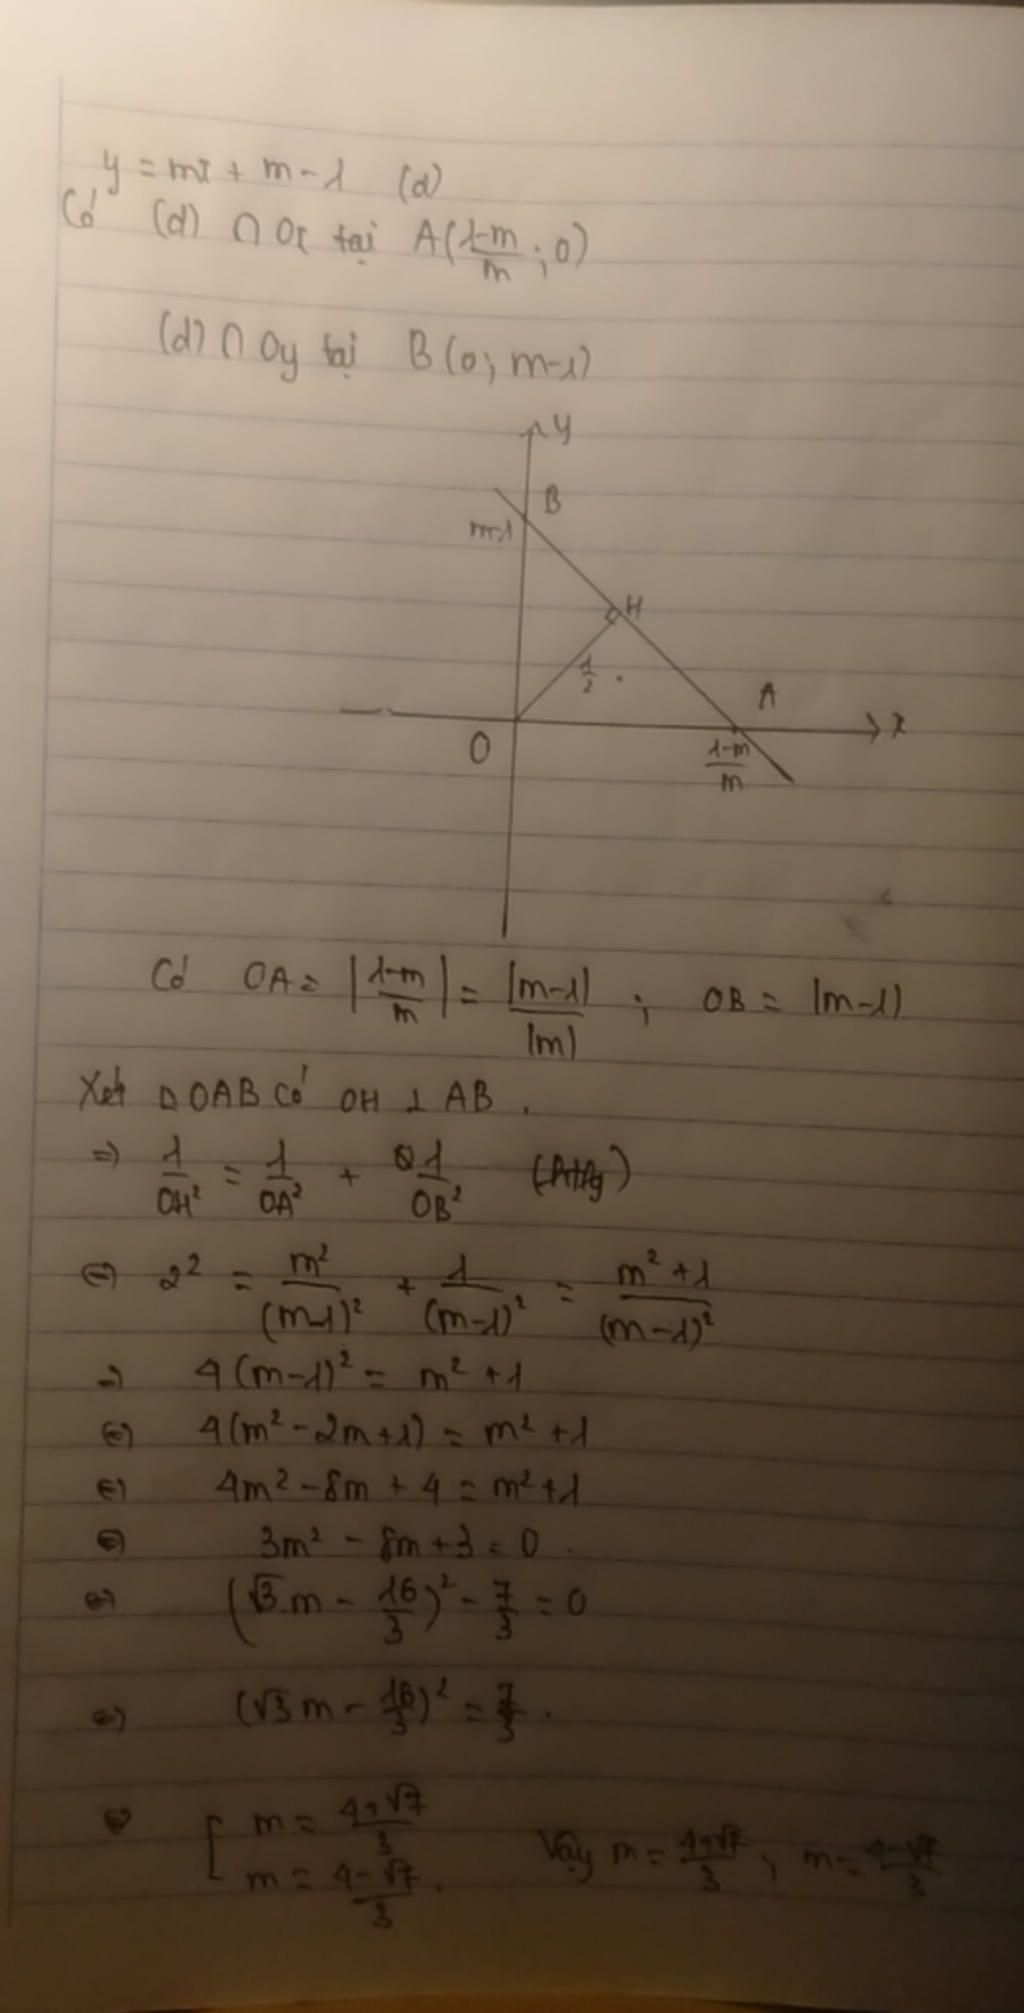 y = mx + m - 1 (d)
Có (d) ∩ Ox tại A(\frac{1-m}{m}; 0)
(d) ∩ Oy tại B(0; m-1)
y
B
m-1
H
\frac{1}{2}
A
x
O
\frac{1-m}{m}
Có OA = |\frac{1-m}{m}| = \frac{|m-1|}{|m|} ; OB = |m-1|
Xét Δ OAB có OH ⊥ AB.
=> \frac{1}{OH²} = \frac{1}{OA²} + \frac{1}{OB²}
<=> 2² = \frac{m²}{(m-1)²} + \frac{1}{(m-1)²} = \frac{m²+1}{(m-1)²}
=> 4(m-1)² = m² + 1
<=> 4(m² - 2m + 1) = m² + 1
<=> 4m² - 8m + 4 = m² + 1
<=> 3m² - 8m + 3 = 0.
<=> (√3.m - \frac{16}{3})² - \frac{7}{3} = 0
<=> (√3 m - \frac{16}{3})² = \frac{7}{3}.
<=> [ m = \frac{4+√7}{3}
m = \frac{4-√7}{3}. Vậy m = \frac{4+√7}{3}; m = \frac{4-√7}{3}